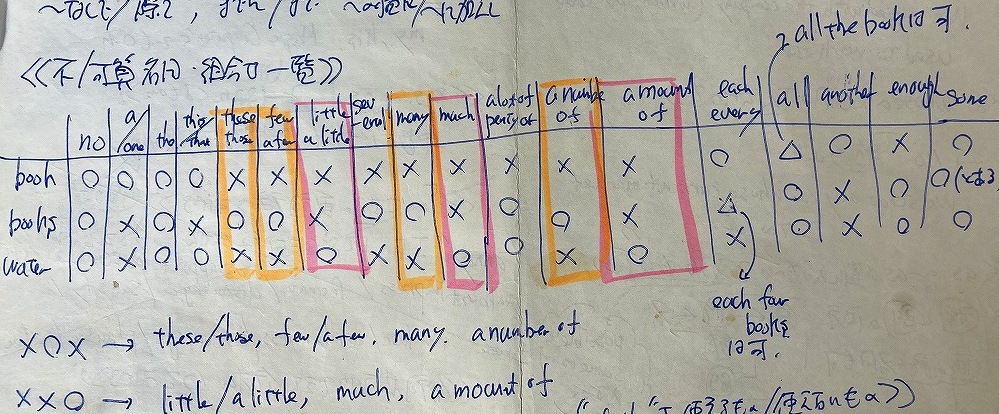 all the bookは可.
《不/可算名詞・組合わ一覧》
no a/one the this/that these those few a few little a little several many much a lot of plenty of a number of a mount of each every all another enough some
book ○ ○ ○ ○ × × × × × × × × × ○ △ ○ × ○
books ○ × ○ × ○ ○ × ○ ○ × ○ ○ × △ ○ × ○ ○
water ○ × ○ ○ × × ○ × × ○ ○ × ○ × ○ × ○ ○
each four
books
は可.
×○× → these/those, few/a few, many, a number of
××○ → little/a little, much, a mount of